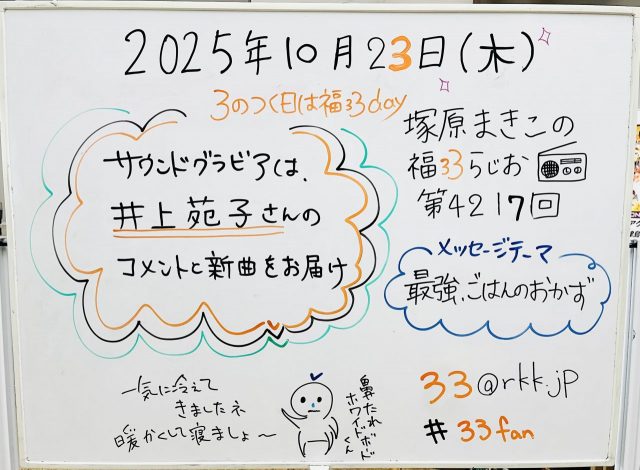 2025年10月23日(木)
3のつく日は福33day
サウンドグラビアは、
井上苑子さんの
コメントと新曲をお届け
塚原まきこの
福33らじお
第4217回
メッセージテーマ
最強、ごはんのおかず
一気に冷えて
きましたネ
暖かくして寝ましょ〜
鼻たれ
ホワイトボード
くん
33@rkk.jp
#33fan